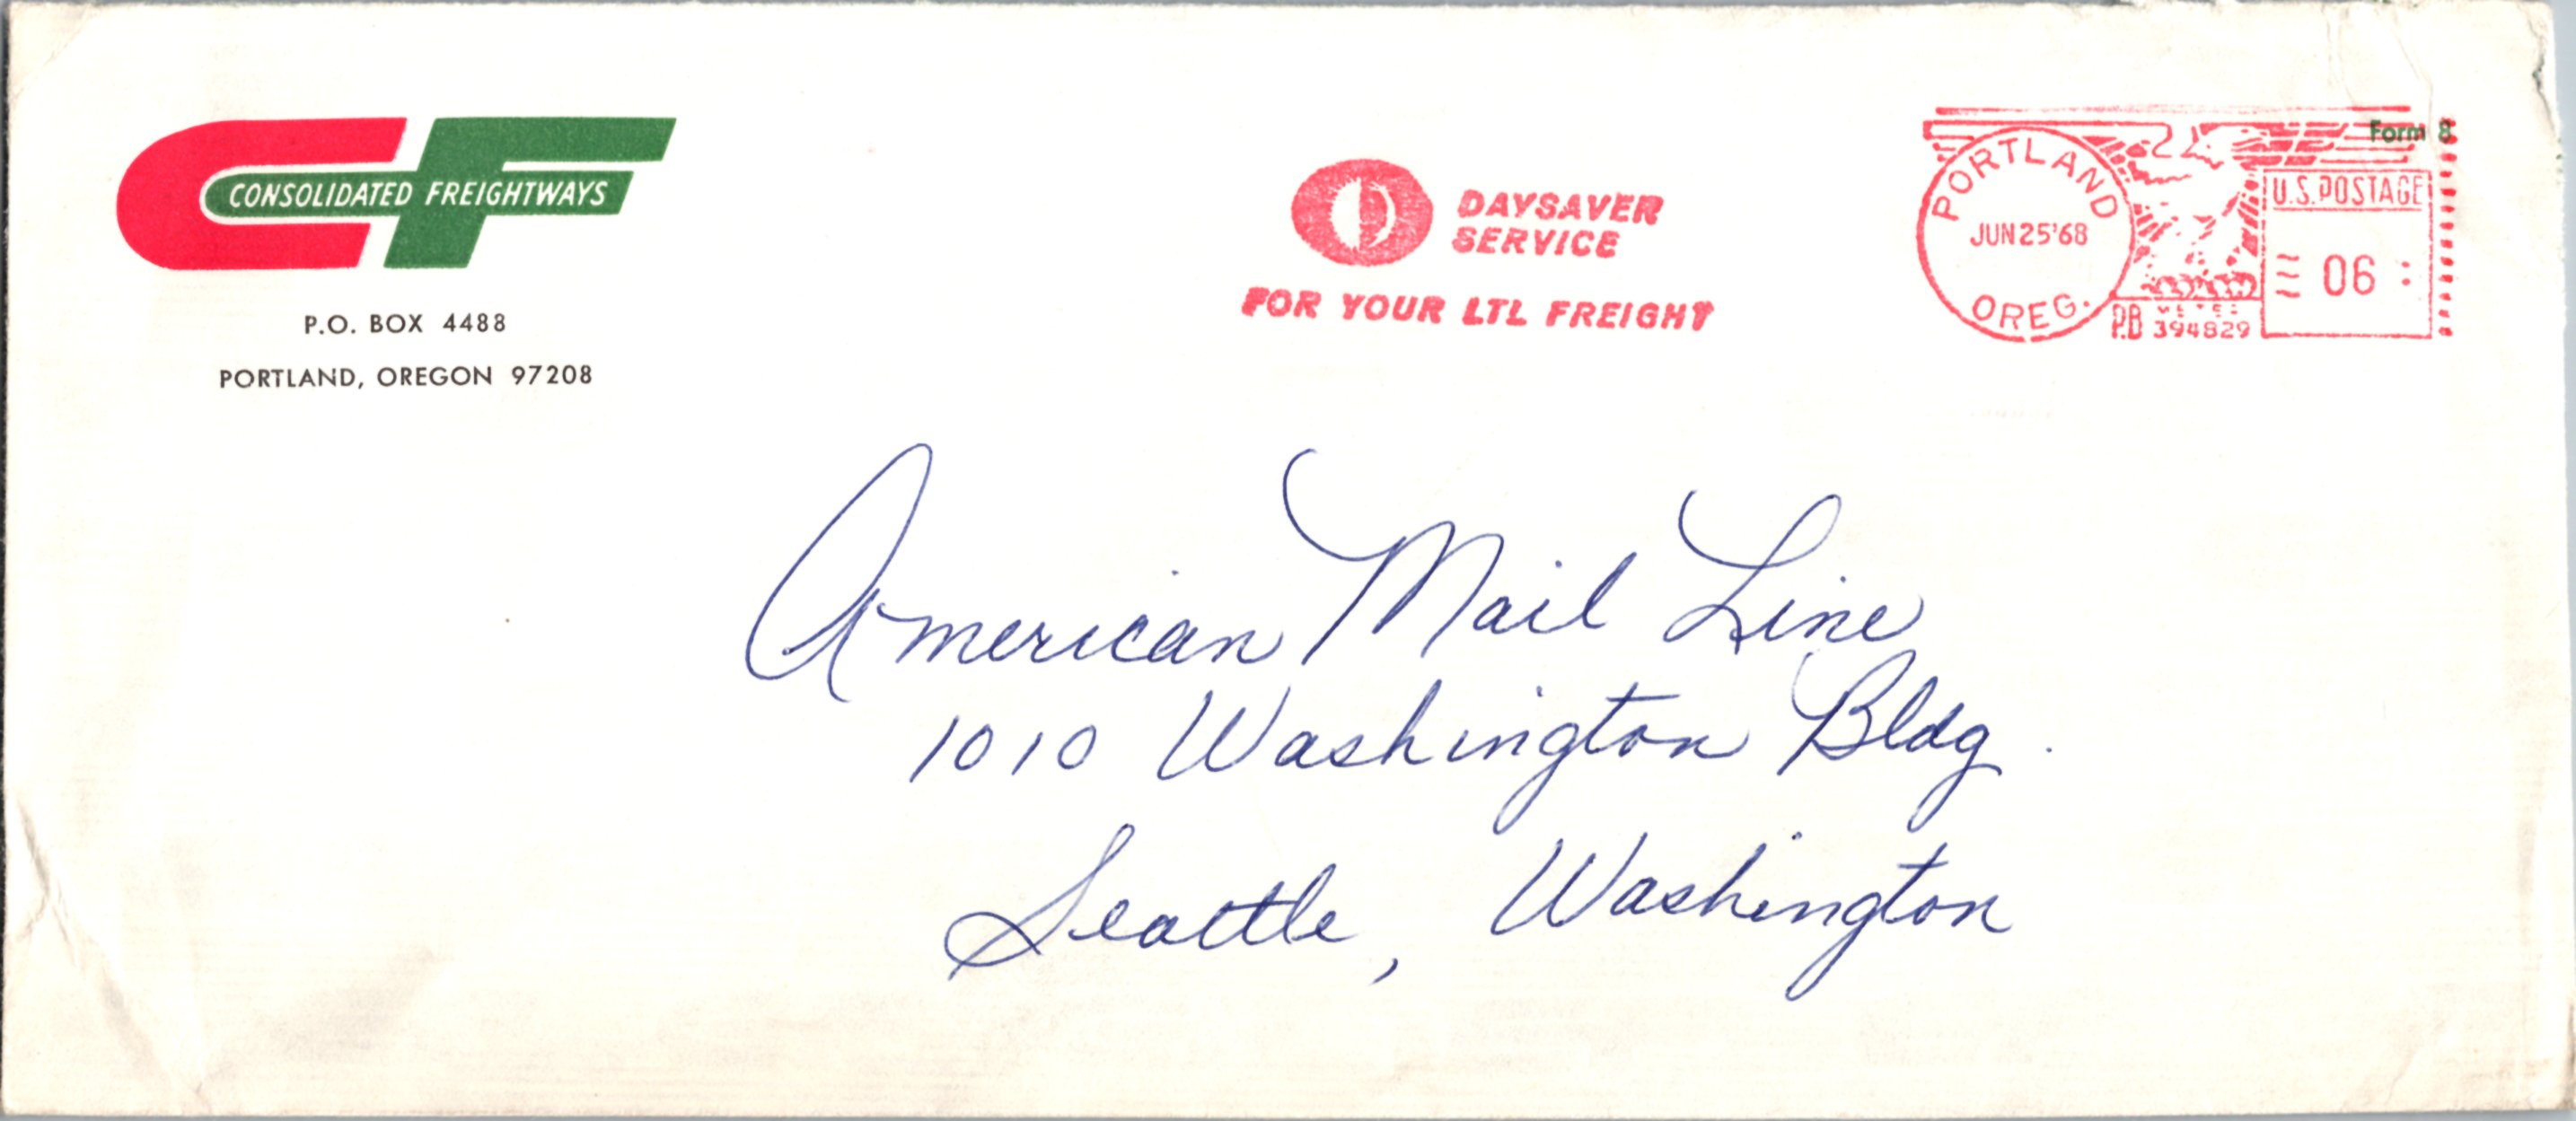 CF
CONSOLIDATED FREIGHTWAYS
P.O. BOX 4488
PORTLAND, OREGON 97208
DAYSAVER
SERVICE
FOR YOUR LTL FREIGHT
PORTLAND
JUN 25 '68
OREG.
P.B. METER
394829
Form 8
U.S. POSTAGE
06
American Mail Line
1010 Washington Bldg.
Seattle, Washington